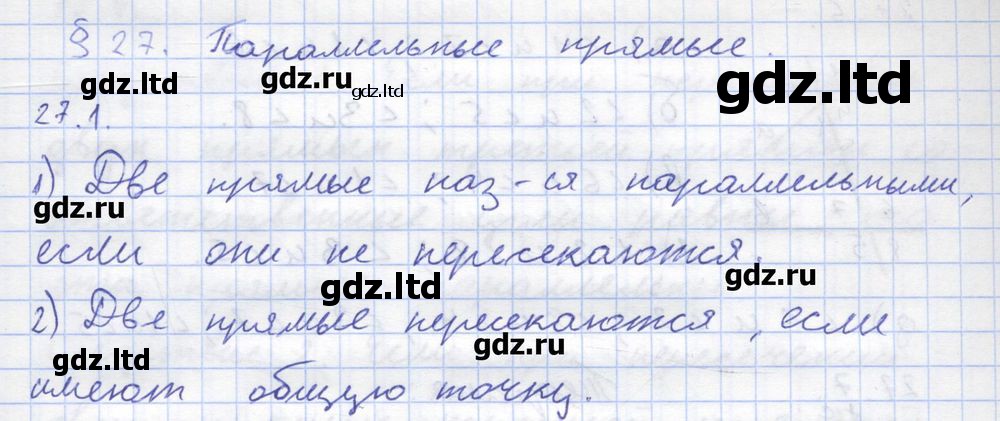 § 27. Параллельные прямые.
gdz.ltd gdz.ru gdz.ltd gdz.ltd
27.1.
1) Две прямые наз-ся параллельными,
gdz.ru
если они не пересекаются.
gdz.ltd gdz.ru
2) Две прямые пересекаются, если
gdz.ltd gdz.ru
имеют общую точку.